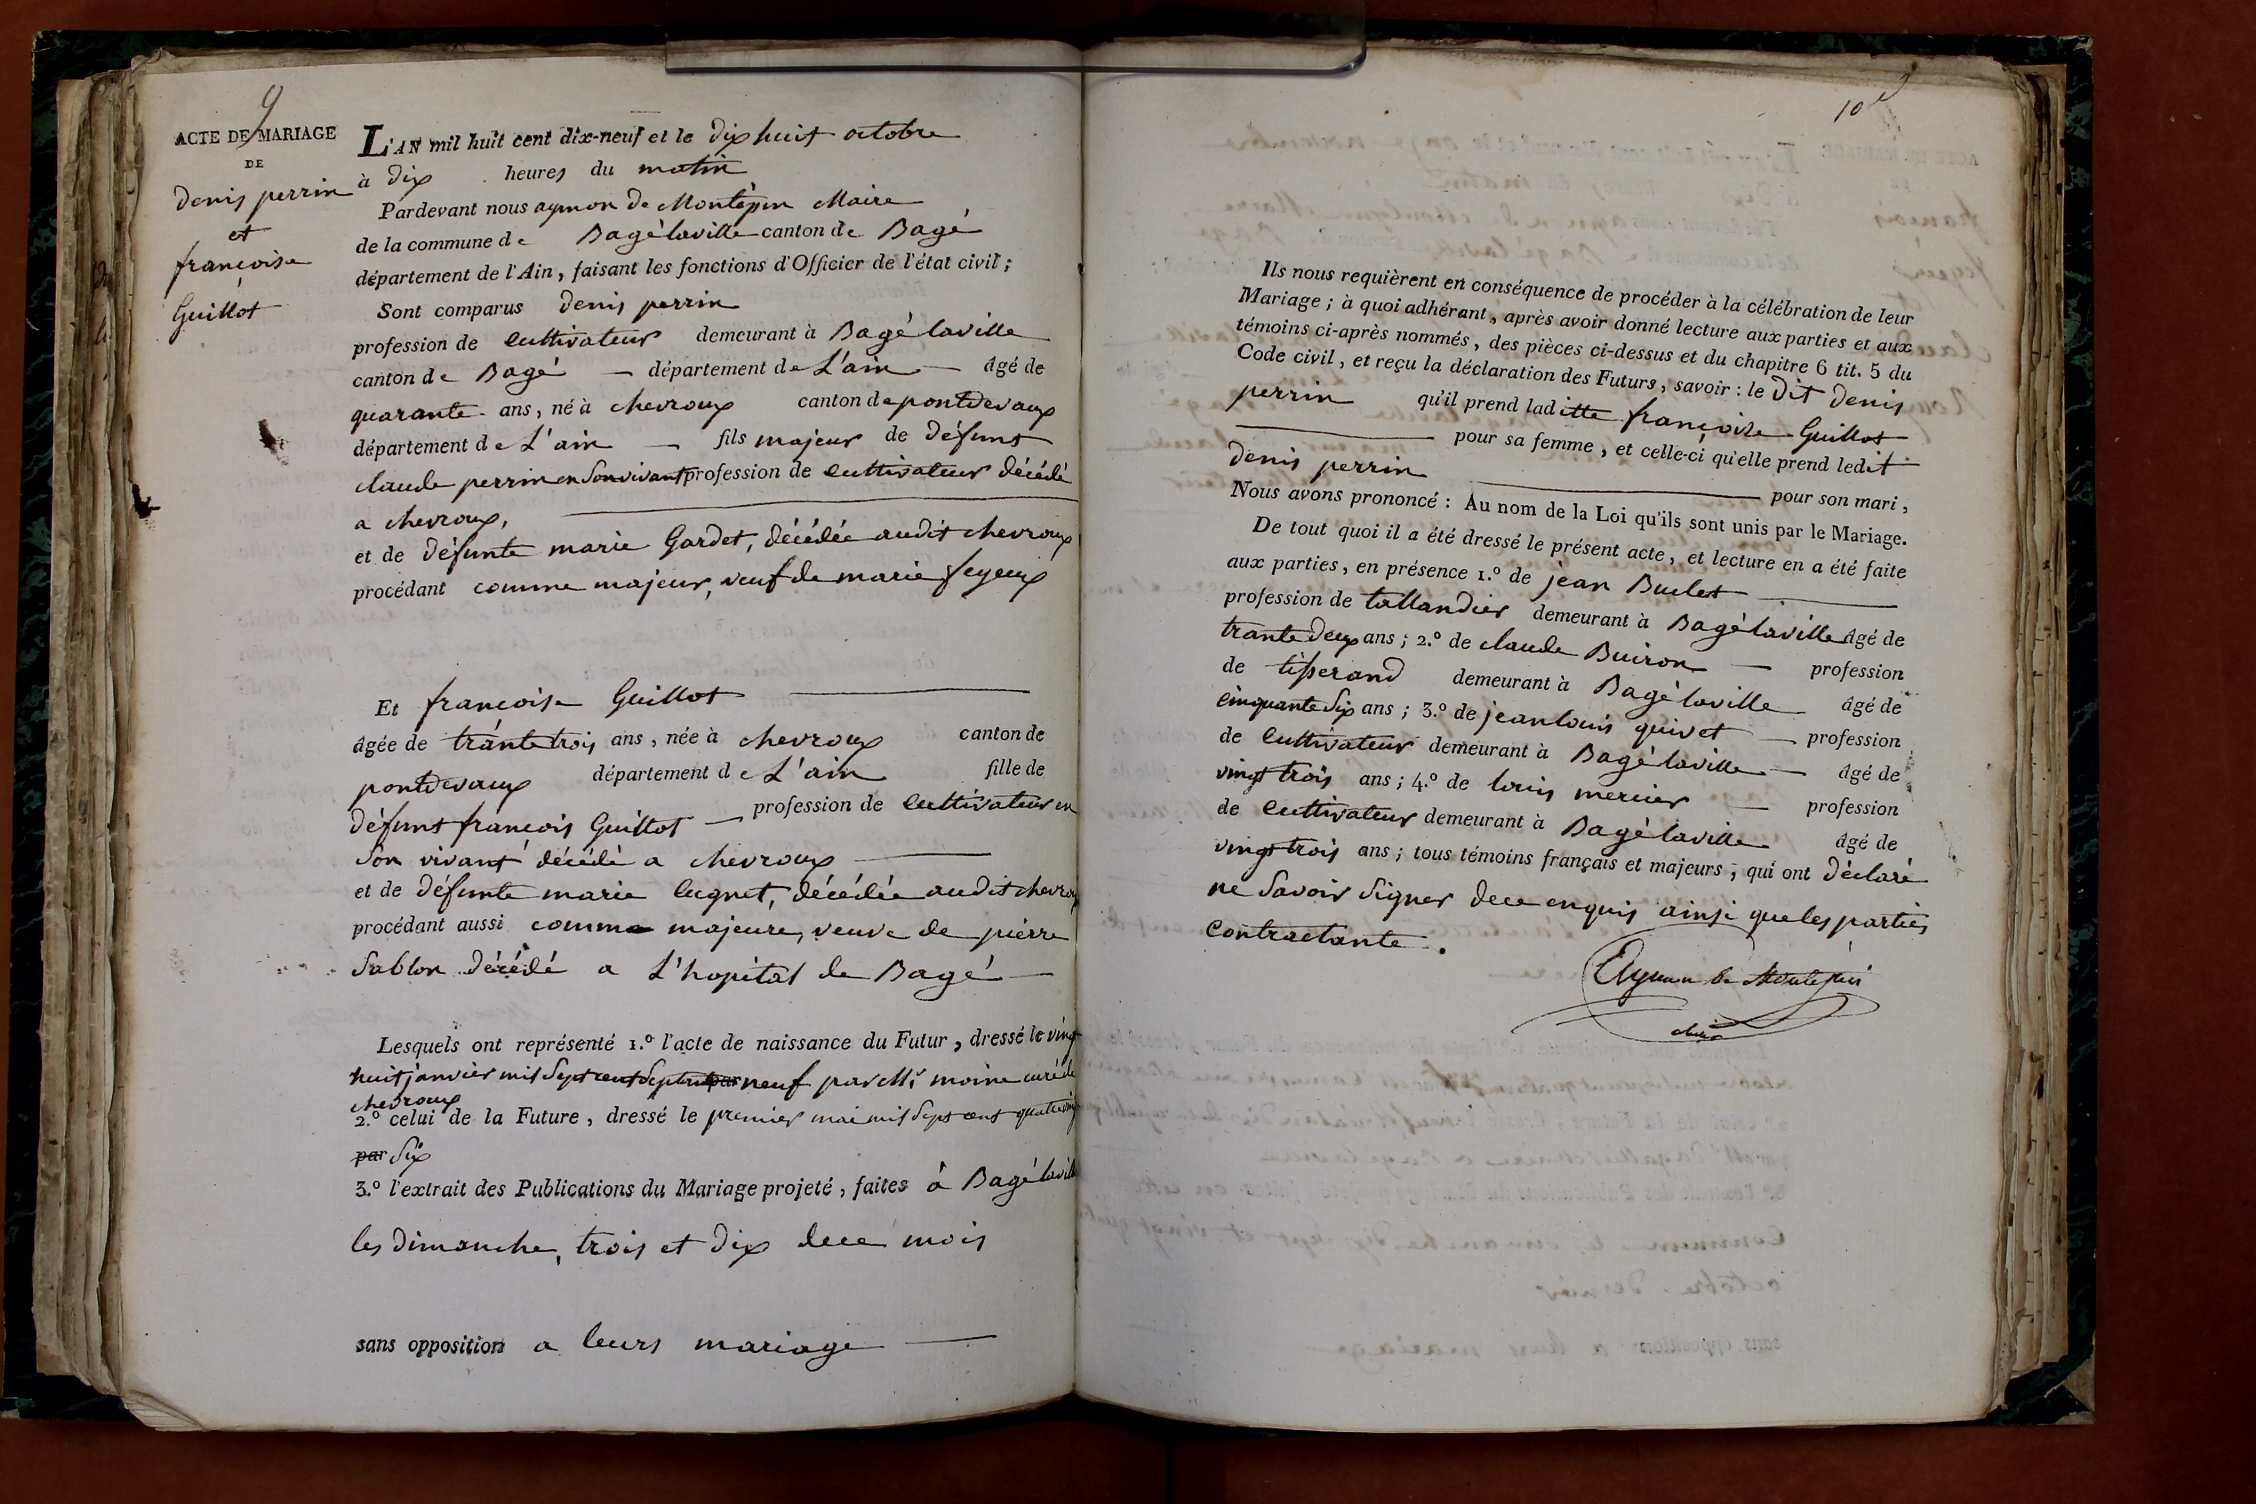 9
ACTE DE MARIAGE
DE
denis perrin
et
françoise
Guillot
L'AN mil huit cent dix-neuf et le dix huit octobre
à dix heures du matin
Pardevant nous aymon de Montépin Maire
de la commune de Bagé laville canton de Bagé
département de l'Ain, faisant les fonctions d'Officier de l'état civil;
Sont comparus denis perrin
profession de cultivateur demeurant à Bagé laville
canton de Bagé — département de L'ain — âgé de
quarante ans, né à chevroux canton de pontdevaux
département de L'ain — fils majeur de défunt
claude perrin en son vivant profession de cultivateur décédé
a chevroux,
et de défunte marie Gardet, décédée audit chevroux
procédant comme majeur, veuf de marie feyeux
Et françoise Guillot
âgée de trante trois ans, née à chevroux canton de
pontdevaux département de L'ain fille de
défunt françois Guillot — profession de cultivateur en
Son vivant décédé a chevroux
et de défunte marie lugnet, décédée audit chevroux
procédant aussi comme majeure, veuve de pierre
Sablon décédé a L'hopital de Bagé
Lesquels ont représenté 1.º l'acte de naissance du Futur, dressé le vingt
huit janvier mil Sept cent Septante par neuf par Mr moine curé de
chevroux
2.º celui de la Future, dressé le premier mai mil Sept cent quatre vingt
par Six
3.º l'extrait des Publications du Mariage projeté, faites à Bagé laville
les dimanche, trois et dix dece mois
sans opposition a leurs mariage
10e
Ils nous requièrent en conséquence de procéder à la célébration de leur
Mariage; à quoi adhérant, après avoir donné lecture aux parties et aux
témoins ci-après nommés, des pièces ci-dessus et du chapitre 6 tit. 5 du
Code civil, et reçu la déclaration des Futurs, savoir: le dit denis
perrin qu'il prend laditte françoise Guillot
pour sa femme, et celle-ci qu'elle prend ledit
denis perrin pour son mari,
Nous avons prononcé: Au nom de la Loi qu'ils sont unis par le Mariage.
De tout quoi il a été dressé le présent acte, et lecture en a été faite
aux parties, en présence 1.º de jean Buclet
profession de tallandier demeurant à Bagé laville âgé de
trante deux ans; 2.º de claude Buiron — profession
de tisserand demeurant à Bagé laville âgé de
cinquante Six ans; 3.º de jean louis quivet — profession
de cultivateur demeurant à Bagé laville — âgé de
vingt trois ans; 4.º de louis mercier — profession
de cultivateur demeurant à Bagé laville âgé de
vingt trois ans; tous témoins français et majeurs, qui ont déclaré
ne Savoir Signer dece enquis ainsi que les parties
Contractante.
Aymon de Montépin